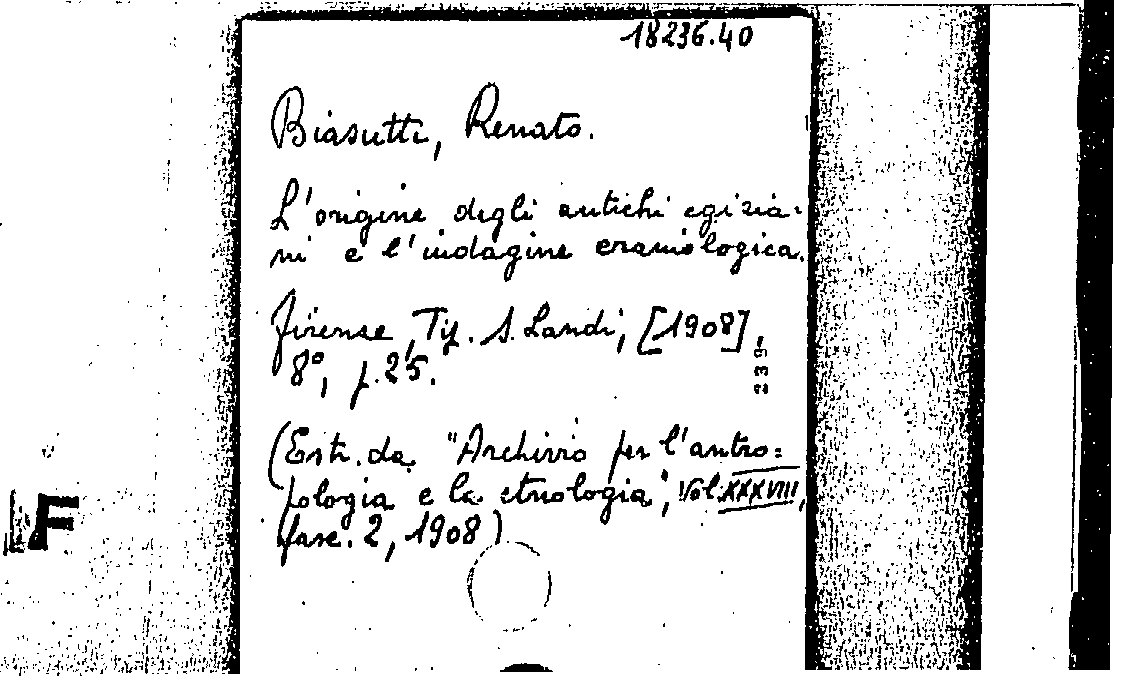 18236.40
Biasutti, Renato.
L'origine degli antichi egizia=
ni e l'indagine craniologica.
Firenze, Tip. S. Landi, [1908],
8º, p. 25.
239
(Estr. da "Archivio per l'antro=
pologia e la etnologia", Vol. XXXVIII,
fasc. 2, 1908)
F